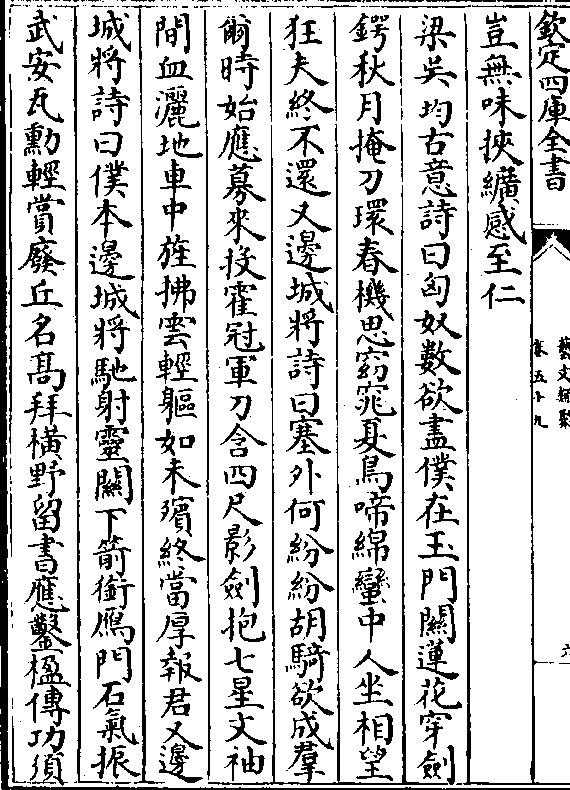 欽定四庫全書
藝文類聚
卷五十九
六
豈無味挾纊感至仁
梁吳均古意詩曰匈奴數欲盡僕在玉門關蓮花穿劍
鍔秋月掩刀環春機思窈窕夏鳥啼綿蠻中人坐相望
狂夫終不還又邊城將詩曰塞外何紛紛胡騎欲成羣
爾時始應募來投霍冠軍刀含四尺影劍抱七星文袖
間血灑地車中旌拂雲輕軀如未殯終當厚報君又邊
城將詩曰僕本邊城將馳射靈關下箭銜鴈門石氣振
武安瓦勳輕賞廢丘名髙拜橫野留書應鑿楹傳功須